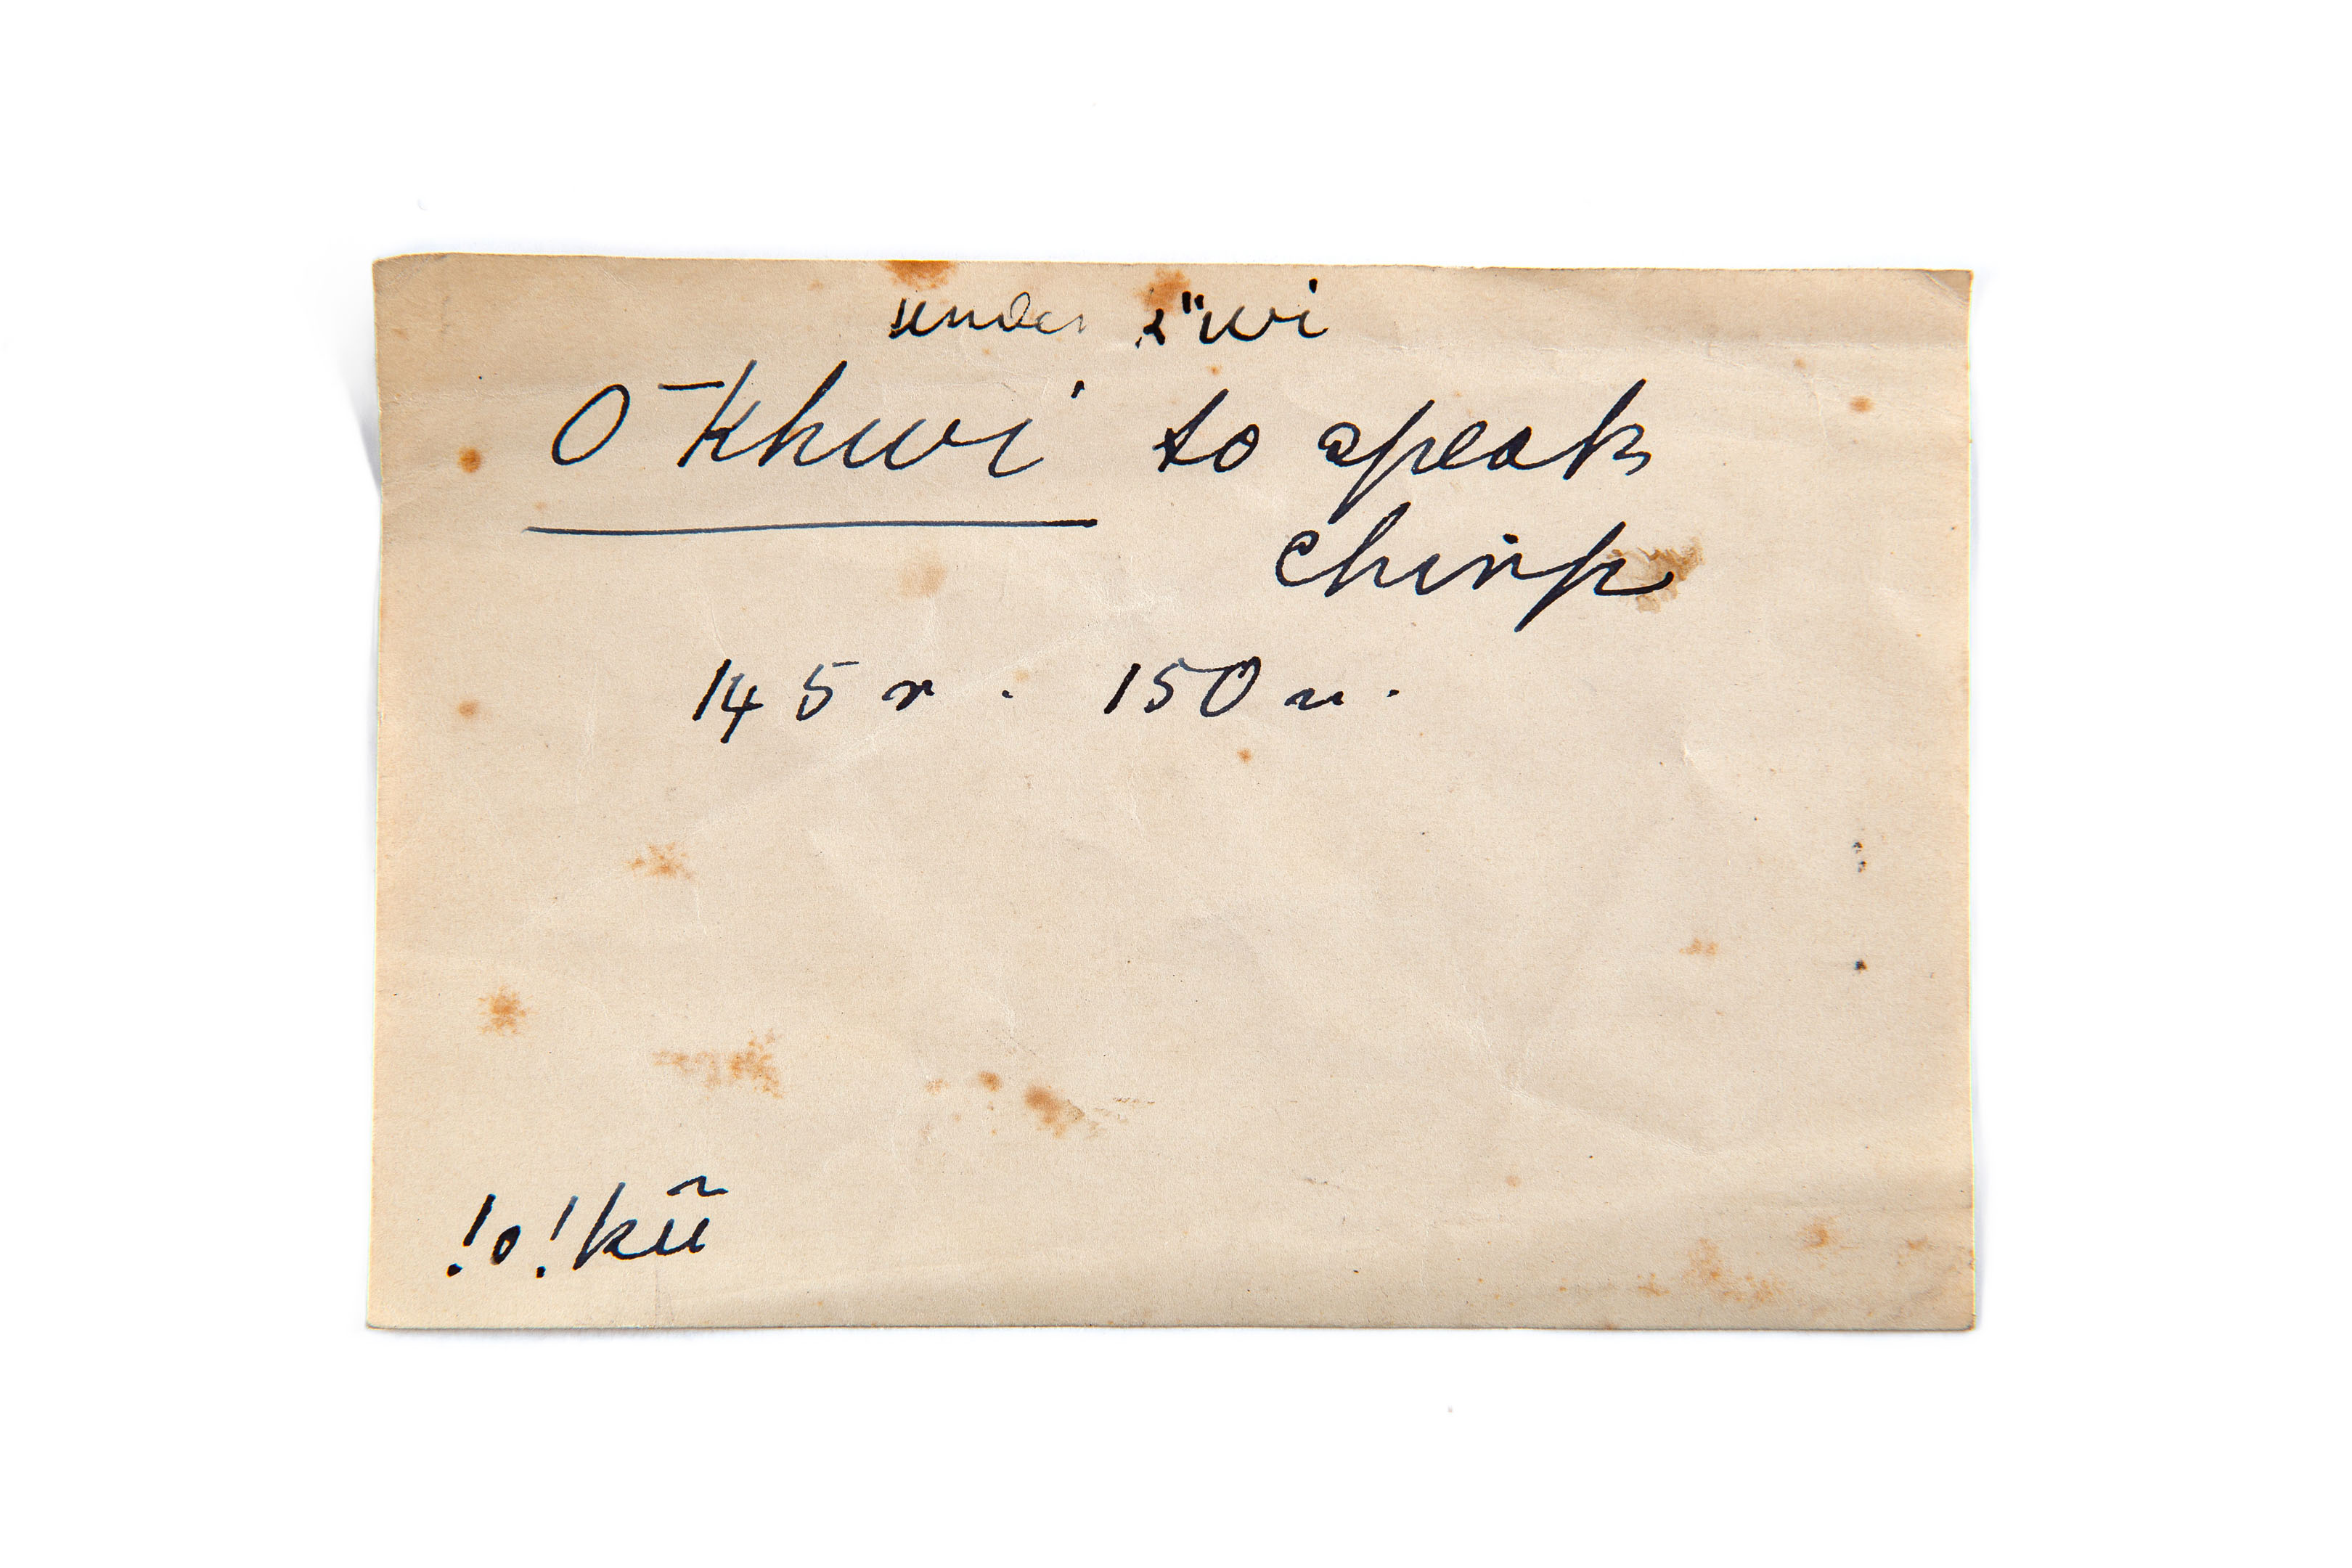 under
O ̄khwi to speak
chirp
145 r. 150 u.
!o!kũ